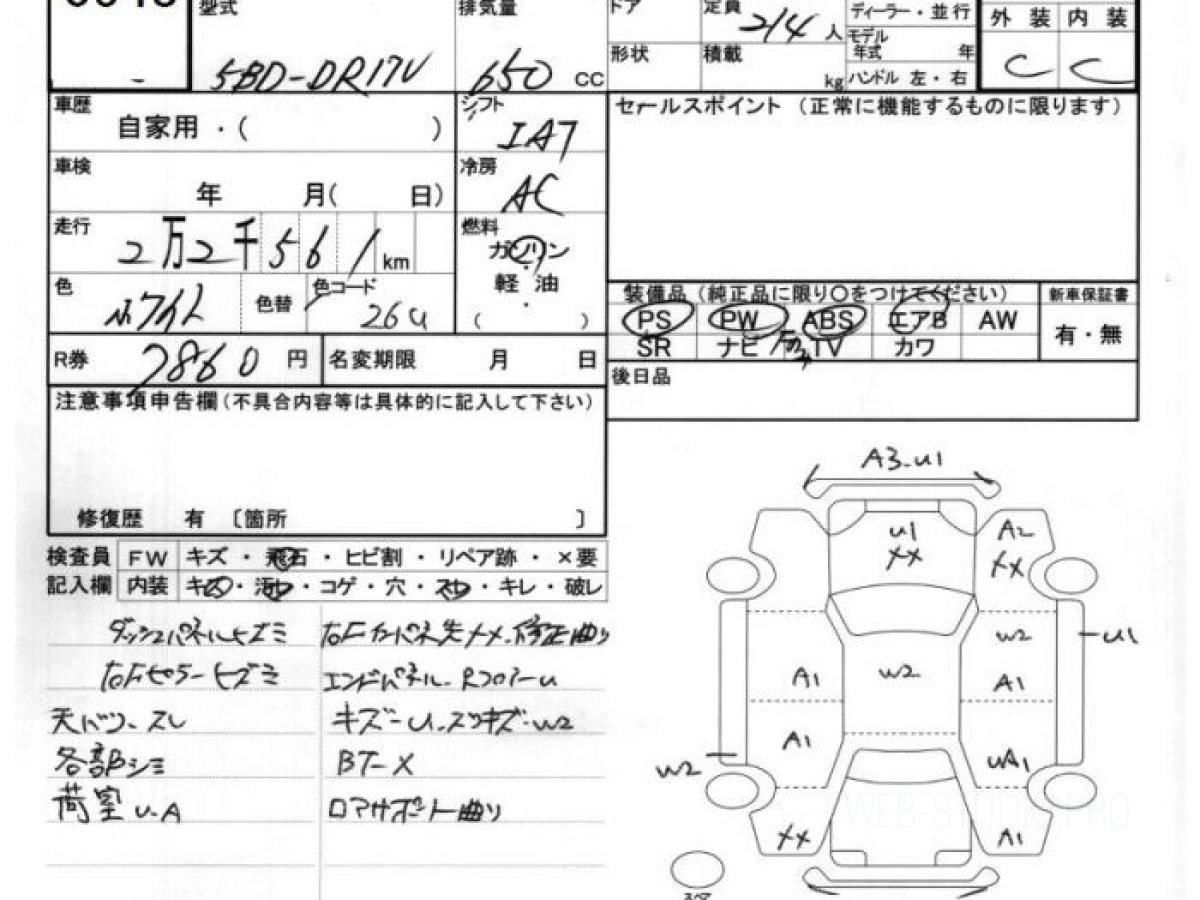 型式
排気量
ドア
定員
2/4 人
ディーラー・並行
外装 内装
5BD-DR17V
650 CC
形状
積載
kg
モデル年式 年
ハンドル 左・右
C C
車歴
自家用・( )
シフト
IAT
セールスポイント (正常に機能するものに限ります)
車検
年 月( 日)
冷房
AC
走行
2万2千561km
燃料
ガソリン
・
軽油
・
( )
色
ホワイト
色替
色コード
26U
装備品 (純正品に限り○をつけてください)
新車保証書
PS PW ABS エアB AW
有・無
SR ナビ TV カワ
R券
7860 円
名変期限 月 日
後日品
注意事項申告欄(不具合内容等は具体的に記入して下さい)
修復歴 有 〔箇所 〕
検査員
FW キズ・飛石・ヒビ割・リペア跡・×要
記入欄
内装 キズ・汚レ・コゲ・穴・スレ・キレ・破レ
ダッシュパネルヒズミ
右Fピラーヒズミ
天バリ-スレ
各部シミ
荷室 U.A
右Fカバパネ先メメ.修正曲り
エンドパネル.RフロアーU
キズ-U.スリキズ.W2
BT-X
ロアサポート曲り
A3-U1
U1
XX
A2
XX
W2
U1
W2
A1
A1
A1
UA1
W2
XX
A1
WEB-STUDIO.PRO